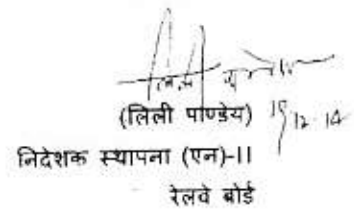 (लिली पाण्डेय)
12.14
निदेशक स्थापना (एन)-II
रेलवे बोर्ड